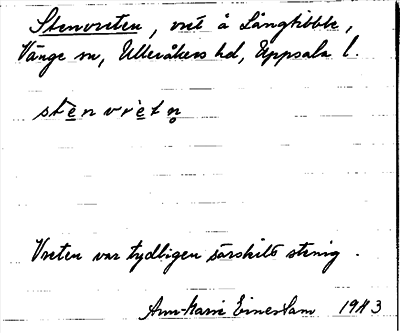 Stenvreten, vret å Långtibble,
Vänge sn, Ulleråkers hd, Uppsala l.
stènvrètn̥
Vreten var tydligen särskilt stenig.
Ann-Marie Einerstam 1943